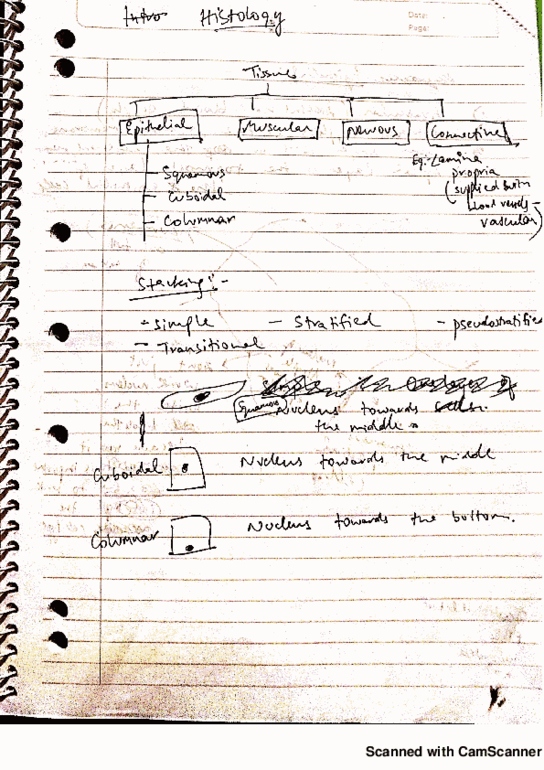 Intro Histology
Date:
Page:
Tissue
Epithelial Muscular Nervous Connective
Eg:- Lamina
propria
(supplied with
blood vessels -
vascular)
- Squamous
- Cuboidal
- Columnar
Stacking:-
- Simple - Stratified - pseudostratified
- Transitional
Squamous Nucleus towards
the middle
Cuboidal Nucleus towards the middle
Columnar Nucleus towards the bottom.
Scanned with CamScanner